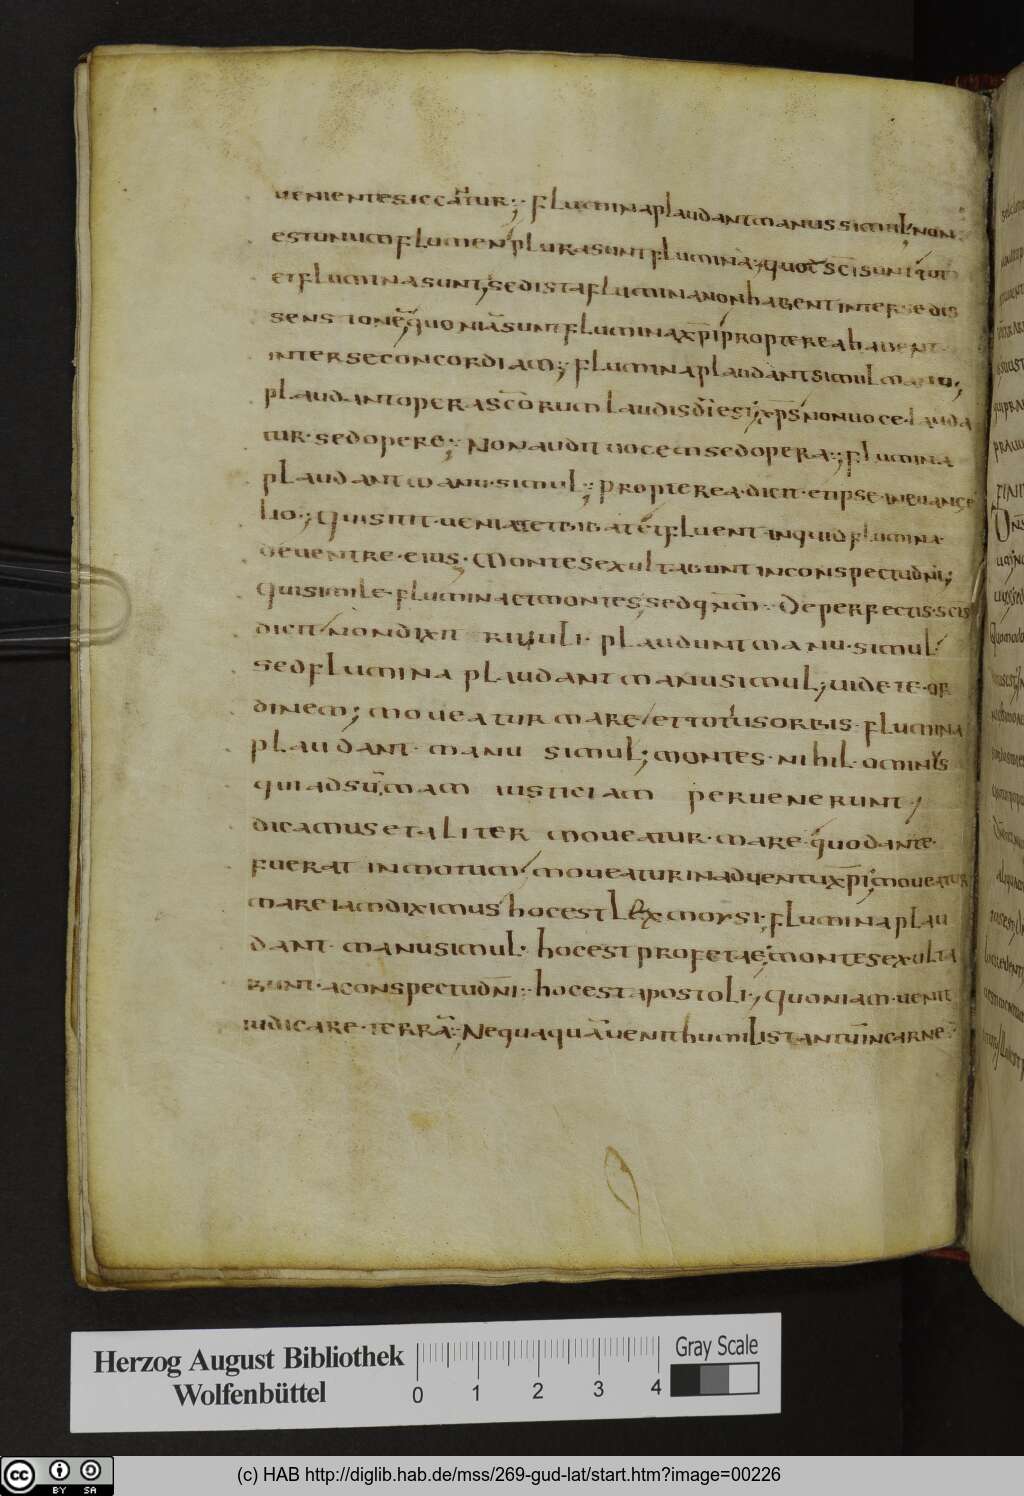 uenientesiccantur; fluminaplaudantmanussimul;non
estunumflumen plurasuntflumina;quot sc̄i sunt tot
etfluminasunt;sedistafluminanonhabentintersedis
sensionē;quoniāsuntfluminaxp̄i proptereahabent
interseconcordiam; fluminaplaudantsimul manu;
plaudantoperasc̄orum laudisd̄iest;xp̄s nonuoce·lauda
tur·sedopere; Nonaudit uocemsedopera; flumina
plaudantmanu·simul; propterea·dicit·etipse·ineuange
lio·; Quisitit·ueniatetbibat etfluent inquid flumina
deuentre·eius· Montesexultabuntinconspectud̄ni;
quisimile·fluminaetmontes;sed Deperfectis·sc̄is
dicit nondixit riuuli· plaudunt manu·simul
sedflumina plaudant manusimul;uidete·or
dinem; moueatur mare ettotusorbis·flumina
plaudant· manu simul;montes·nihil·ominus
quiadsūmam iusticiam peruenerunt;
dicamusetaliter moueatur·mare·quodante
fuerat inmotum moueaturinaduentuxp̄i;moueatur
mareiamdiximus hocest Lex moysi·fluminaplau
dant· manusimul· hocest profetae;montesexulta
bunt·aconspectud̄ni· hocest apostoli·; quoniam·uenit
iudicare·terrā·; Nequaquāuenithumilistantūincarne
Herzog August Bibliothek
Wolfenbüttel
0 1 2 3 4
Gray Scale
cc BY SA
(c) HAB http://diglib.hab.de/mss/269-gud-lat/start.htm?image=00226